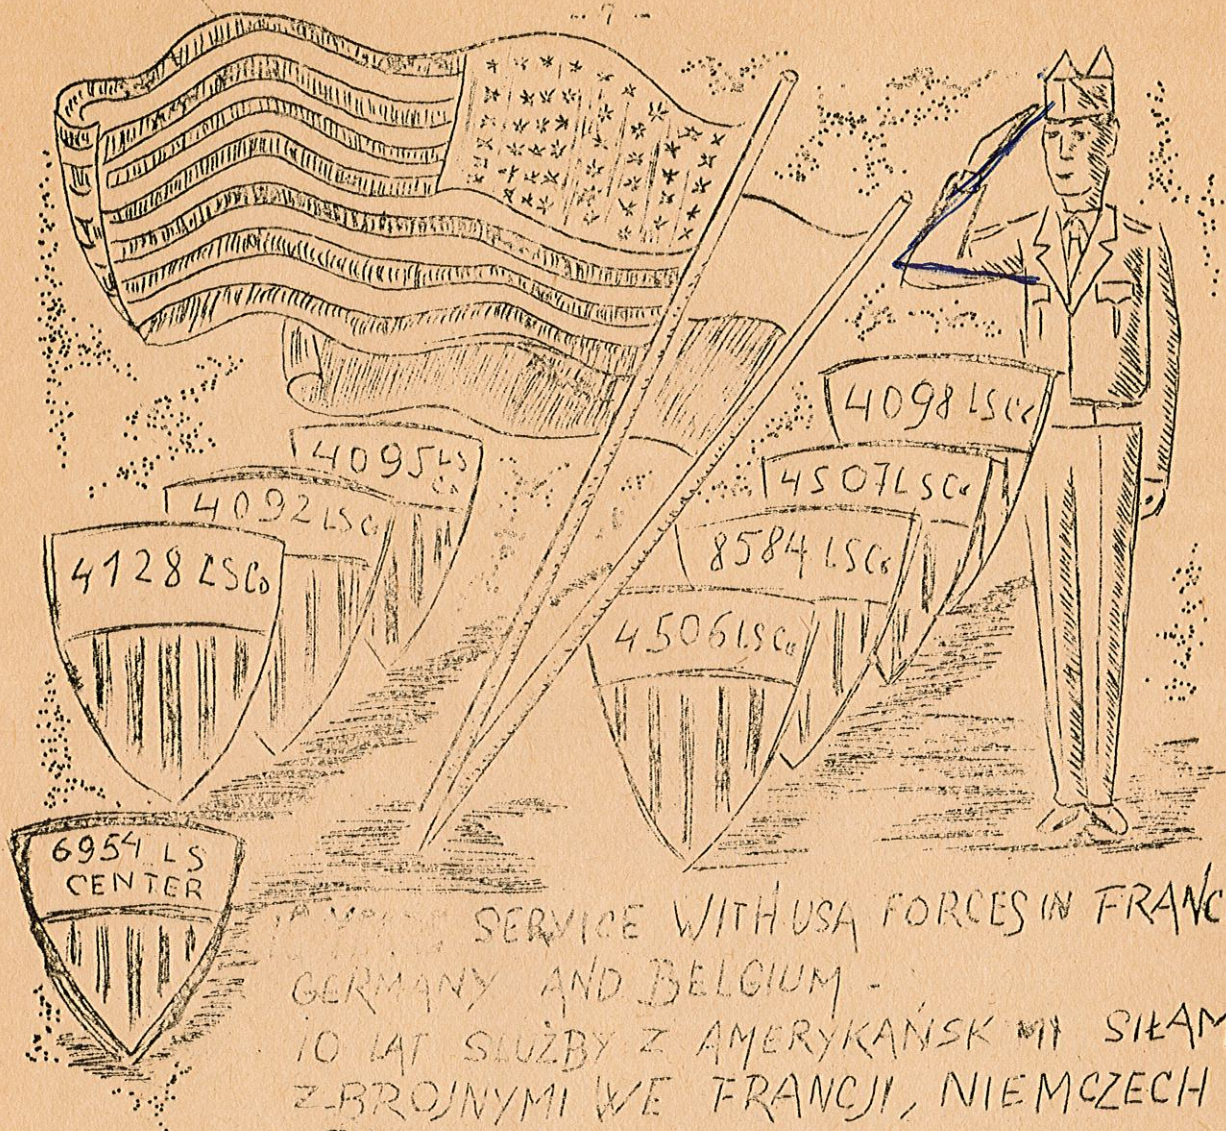 - 7 -
4098 LS Co
4095 LS Co
4507 LS Co
4092 LS Co
8584 LS Co
4128 LS Co
4506 LS Co
6954 LS
CENTER
SERVICE WITH USA FORCES IN FRANC
GERMANY AND BELGIUM -
10 LAT SŁUŻBY Z AMERYKAŃSK MI SIŁAM
ZBROJNYMI WE FRANCJI, NIEMCZECH